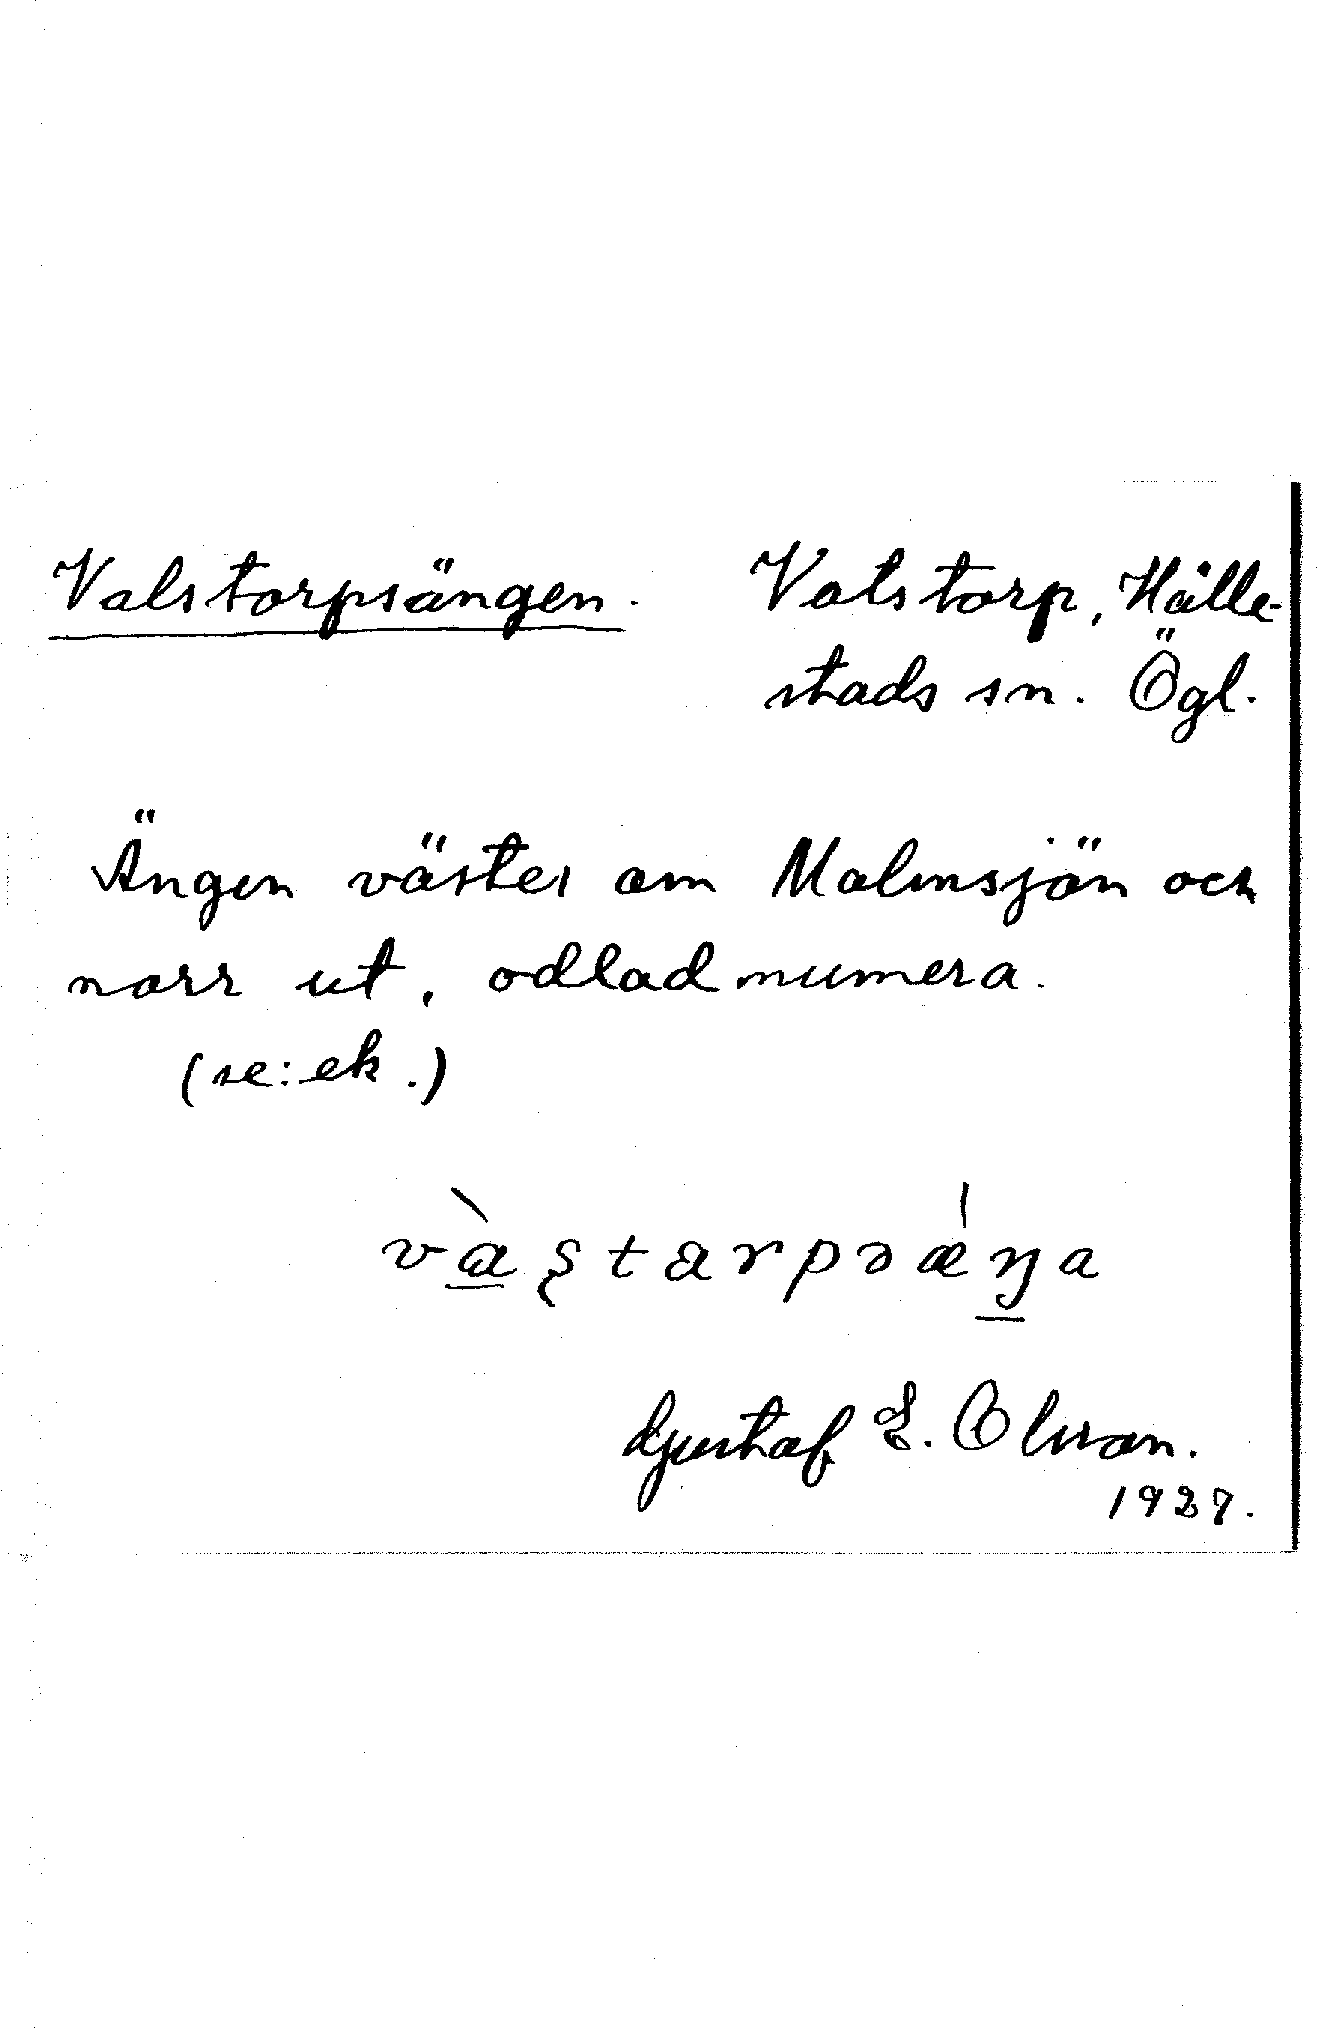 Valstorpsängen. Valstorp, Hälle-
stads sn. Ögl.
Ängen väster om Malmsjön och
norr ut, odlad numera.
(se: ek.)
Gustaf E. Olsson.
1927.